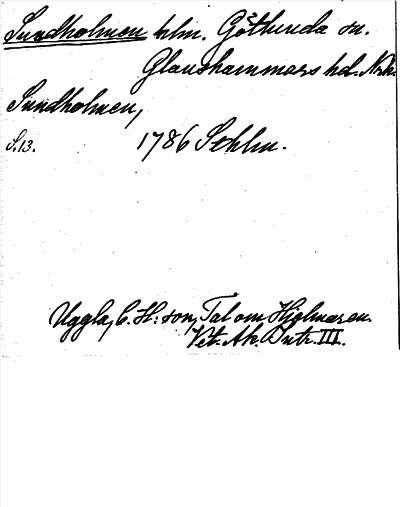 Sundholmen hlm. Götlunda sn.
Glanshammars hd. Nrk.
Sundholmen,
S.13. 1786 Sthlm.
Uggla, C. H:son, Tal om Hjelmaren.
Vet. Ak. Intr. III.